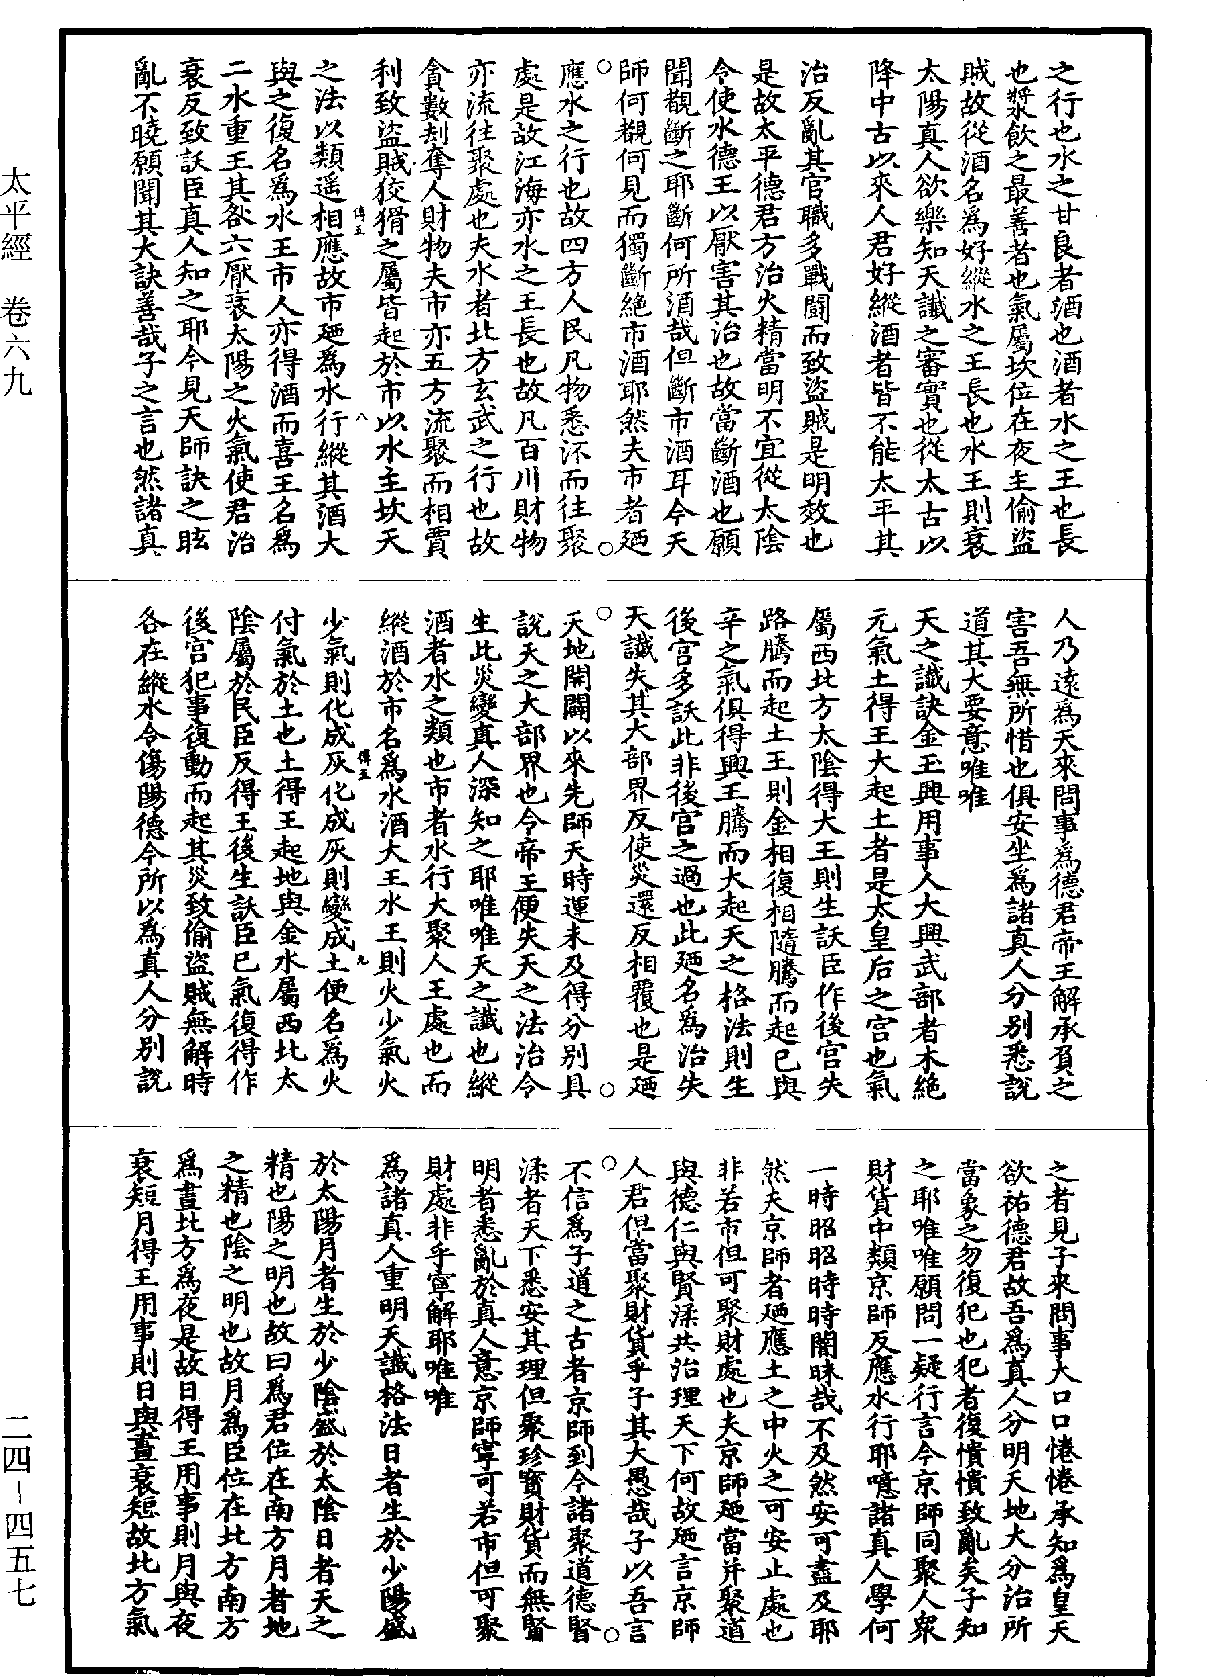 之行也水之甘良者酒也酒者水之王也長
也漿飲之最善者也氣屬坎位在夜主偷盜
賊故從酒名為好縱水之王長也水王則衰
太陽真人欲樂知天讖之審實也從太古以
降中古以來人君好縱酒者皆不能太平其
治反亂其官職多戰鬪而致盜賊是明效也
是故太平德君方治火精當明不宜從太陰
令使水德王以厭害其治也故當斷酒也願
聞覩斷之耶斷何所酒哉但斷市酒耳今天
師何覩何見而獨斷絕市酒耶然夫市者廼
應水之行也故四方人民凡物悉汚而往聚
處是故江海亦水之王長也故凡百川財物
亦流往聚處也夫水者北方玄武之行也故
貪數刦奪人財物夫市亦五方流聚而相賈
利致盜賊狡猾之屬皆起於市以水主坎天
傳五 八
之法以類遥相應故市廼為水行縱其酒大
與之復名為水王市人亦得酒而喜王名為
二水重王其咎六厭衰太陽之火氣使君治
衰反致訞臣真人知之耶今見天師訣之眩
亂不曉願聞其大訣善哉子之言也然諸真
人乃遠為天來問事為德君帝王解承負之
害吾無所惜也俱安坐為諸真人分別悉說
道其大要意唯唯
天之讖訣金玉興用事人大興武部者木絕
元氣土得王大起土者是太皇后之宮也氣
屬西北方太陰得大王則生訞臣作後宮失
路騰而起土王則金相復相隨騰而起已與
辛之氣俱得興王騰而大起天之格法則生
後宮多訞此非後宮之過也此廼名為治失
天讖失其大部界反使災還反相覆也是廼
天地開闢以來先師天時運未及得分別具
說天之大部界也今帝王便失天之法治令
生此災變真人深知之耶唯唯天之讖也縱
酒者水之類也市者水行大聚人王處也而
縱酒於市名為水酒大王水王則火少氣火
傳五 九
少氣則化成灰化成灰則變成土便名為火
付氣於土也土得王起地與金水屬西北太
陰屬於民臣反得王後生訞臣已氣復得作
後宮犯事復動而起其災致偷盜賊無解時
各在縱水令傷陽德今所以為真人分別說
之者見子來問事大口口惓惓承知為皇天
欲祐德君故吾為真人分明天地大分治所
當象之勿復犯也犯者復憒憒致亂矣子知
之耶唯唯願問一疑行言今京師同聚人眾
財貨中類京師反應水行耶噫諸真人學何
一時昭昭時時闇昧哉不及然安可盡及耶
然夫京師者廼應土之中火之可安止處也
非若市但可聚財處也夫京師廼當并聚道
與德仁與賢渘共治理天下何故廼言京師
人君但當聚財貨乎子其大愚哉子以吾言
不信為子道之古者京師到今諸聚道德賢
渘者天下悉安其理但聚珍寳財貨而無賢
明者悉亂於真人意京師寧可若市但可聚
財處非乎寧解耶唯唯
為諸真人重明天讖格法日者生於少陽盛
於太陽月者生於少陰盛於太陰日者天之
精也陽之明也故曰為君位在南方月者地
之精也陰之明也故月為臣位在北方南方
為晝北方為夜是故日得王用事則月與夜
衰短月得王用事則日與晝衰短故北方氣
太平經 卷六九
二四－四五七